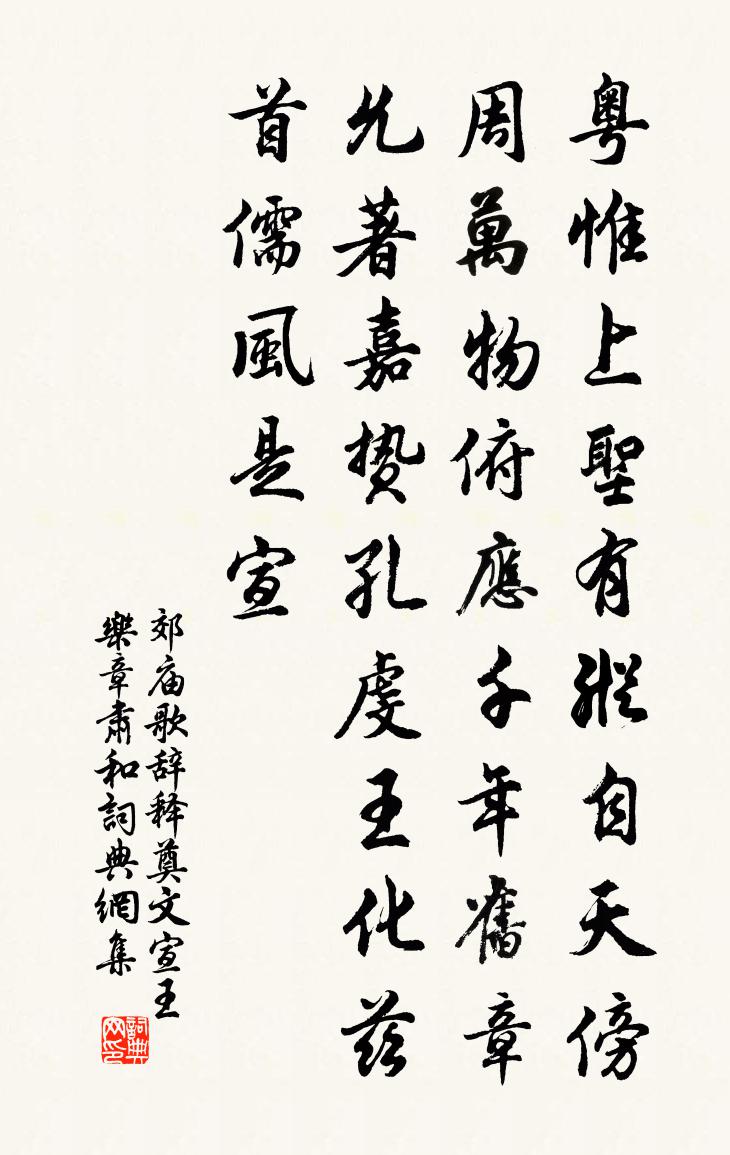 粤惟上聖有縱自天傍
周萬物俯應千年舊章
允著嘉贽孔虔王化兹
首儒風是宣
郊庙歌辞释奠文宣王
樂章肅和詞典網集
詞典网印